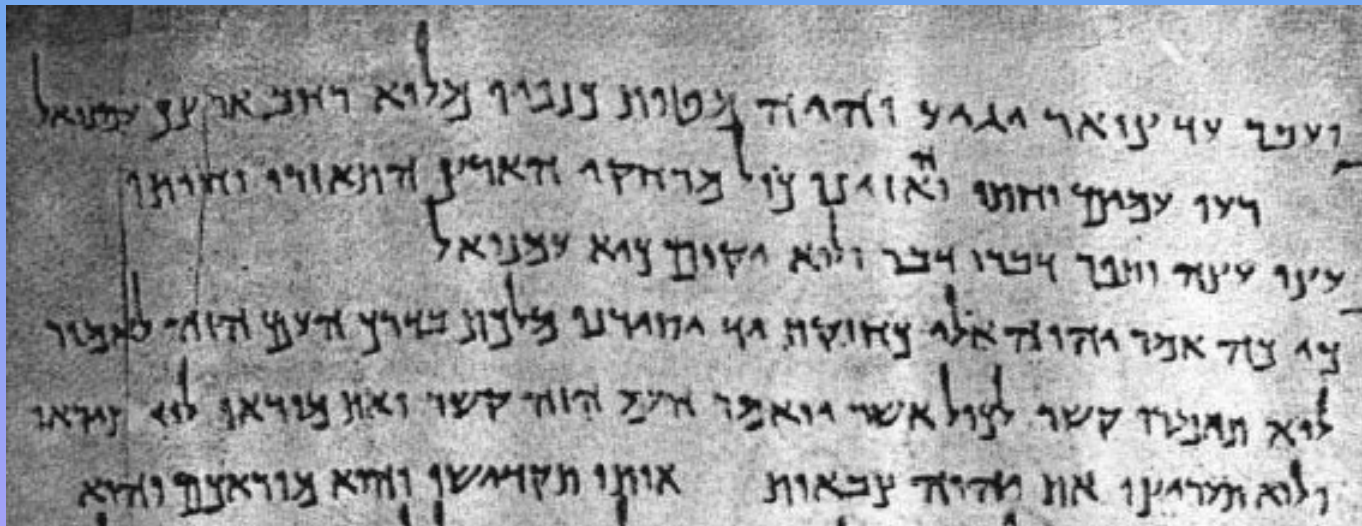 ועבר עד צואר יגיע והיה מטות כנפיו מלוא רחב ארצך עמנואל
רעו עמים וחתו והאזינו כול מרחקי הארץ התאזרו וחותו
עצו עצה ותפר דברו דבר ולוא יקום כיא עמנואל
כי כה אמר יהוה אלי כחזקת יד יסירנו מלכת בדרך העם הזה לאמור
לוא תאמרו קשר לכול אשר יואמר העם הזה קשר ואת מוראו לוא תיראו
ולוא תעריצו את יהוה צבאות אותו תקדישו והוא מוראכם והוא